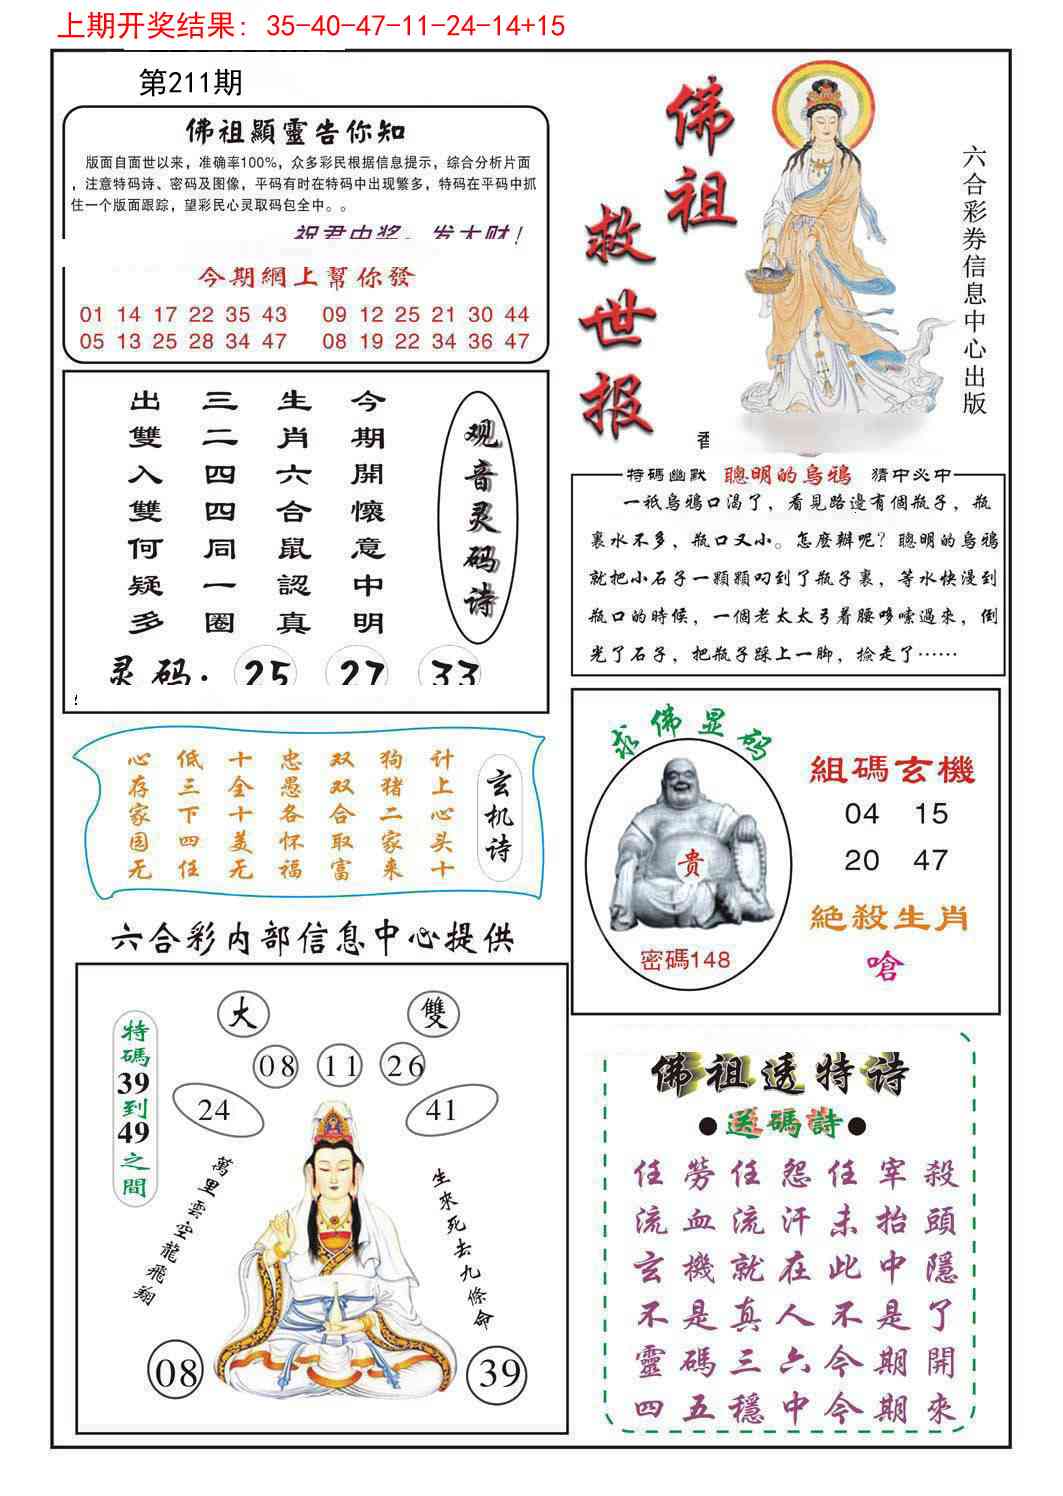 上期开奖结果: 35-40-47-11-24-14+15
第211期
佛祖顯靈告你知
版面自面世以来，准确率100%，众多彩民根据信息提示，综合分析片面
，注意特码诗、密码及图像，平码有时在特码中出现繁多，特码在平码中抓
住一个版面跟踪，望彩民心灵取码包全中。。
祝君中奖，发大财!
今期網上幫你發
01 14 17 22 35 43 09 12 25 21 30 44
05 13 25 28 34 47 08 19 22 34 36 47
佛祖
救世报
六合彩券信息中心出版
香
观音灵码诗
今期開懷意中明
生肖六合鼠認真
三二四四同一圈
出雙入雙何疑多
灵码: 25 27 33
特碼幽默 聰明的烏鴉 猜中必中
一祇烏鴉口渴了，看見路邊有個瓶子，瓶
裏水不多，瓶口又小。怎麼辦呢？聰明的烏鴉
就把小石子一顆顆叼到了瓶子裏，等水快漫到
瓶口的時候，一個老太太弓着腰哆嗦過來，倒
光了石子，把瓶子踩上一脚，撿走了……
玄机诗
计上心头十
狗猪二家来
双双合取富
忠愚各怀福
十全十美无
低三下四任
心存家园无
求佛显码
贵
密碼148
組碼玄機
04 15
20 47
絕殺生肖
嗆
六合彩内部信息中心提供
特碼39到49之間
大 雙
08 11 26
24 41
萬里雲空龍飛翔
生來死去九條命
08 39
佛祖透特诗
●送碼詩●
任勞任怨任宰殺
流血流汗未抬頭
玄機就在此中隱
不是真人不是了
靈碼三六今期開
四五穩中今期來